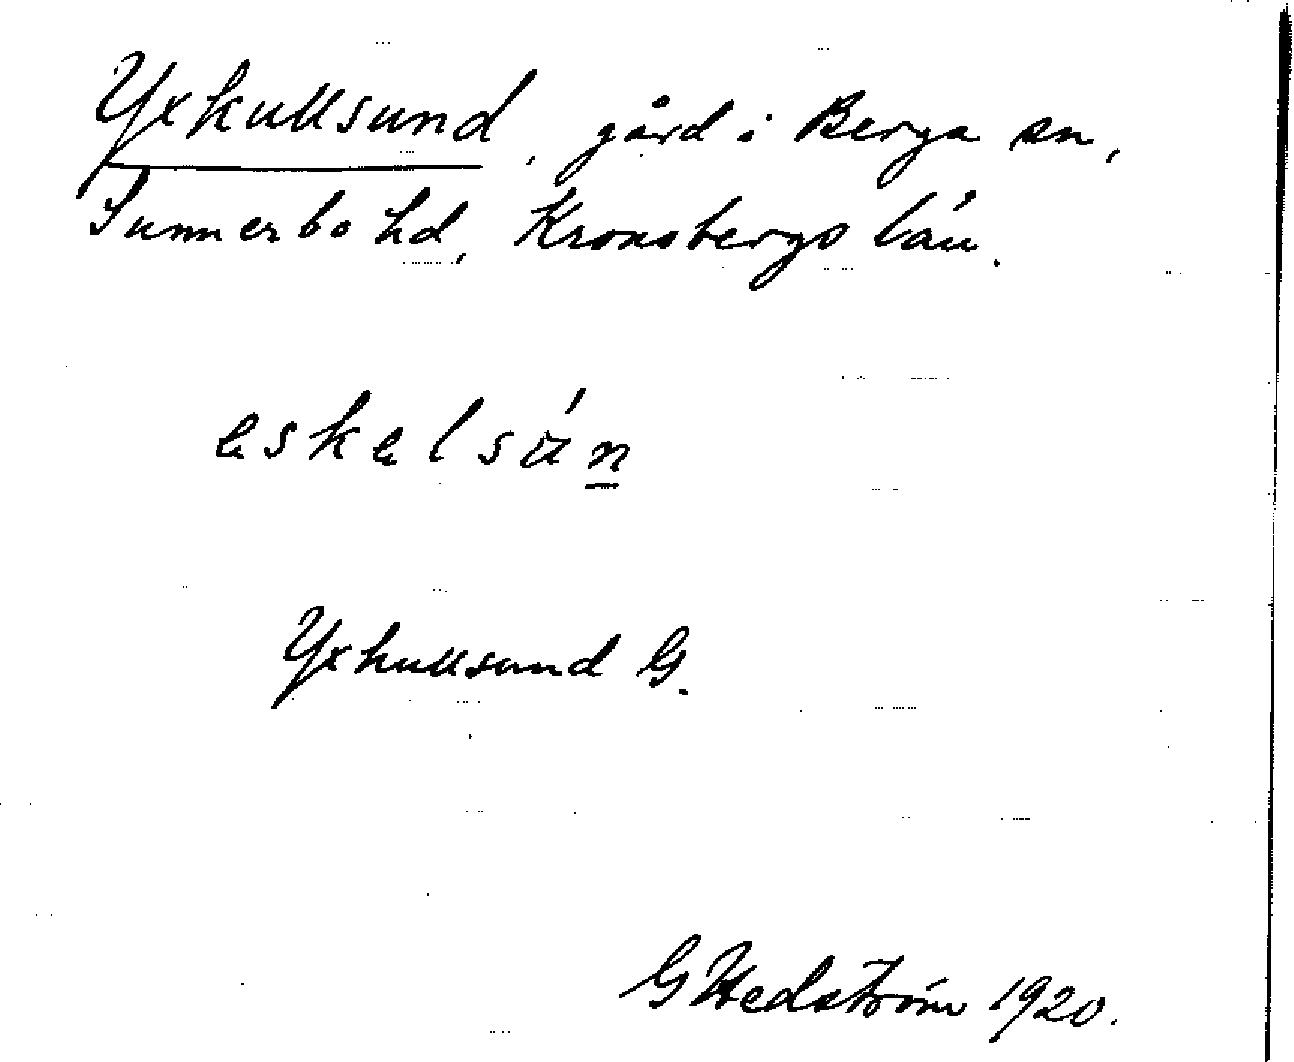 Yxkullsund, gård i Berga sn,
Sunnerbo hd, Kronobergs län.
eskelsún
Yxkullsund G.
G Hedström 1920.